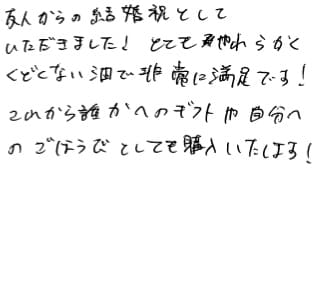 友人からの結婚祝として
いただきました！とてもやわらかく
くどくない油で非常に満足です！
これから誰かへのギフトや自分へ
のごほうびとしても購入いたします！